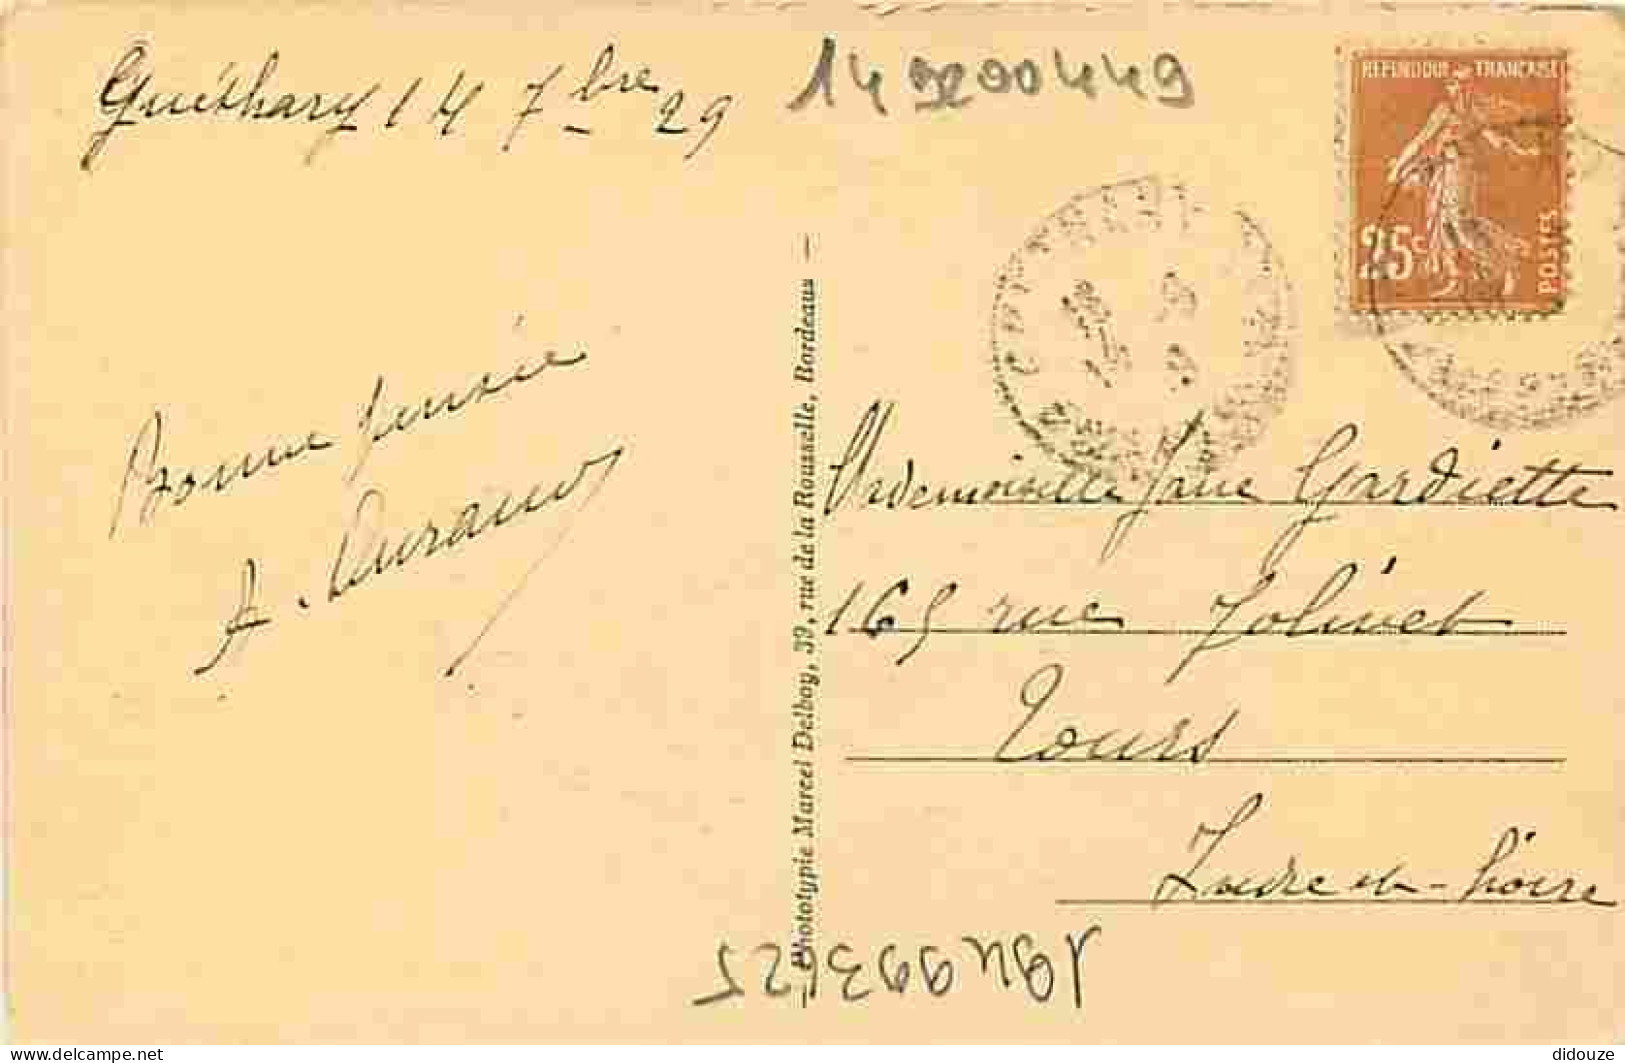 Guéthary 14 7bre 29
14
00449
REPUBLIQUE FRANCAISE
25c
POSTES
Bonne pensée
A. Durand
Phototypie Marcel Delboy, 39, rue de la Rousselle, Bordeaux
Mademoiselle Jane Gardiette
165 rue Jolivet
Tours
Indre et-Loire
194993625
delcampe.net
didouze